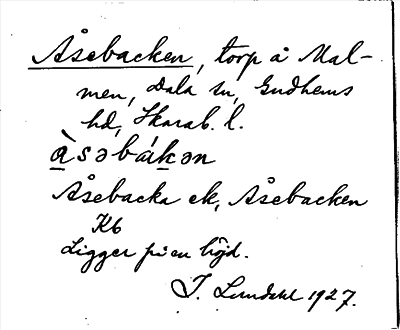 Åsebacken, torp å Mal-
men, Dala sn, Gudhems
hd, Skarab. l.
àsəbákən
Åsebacka ek, Åsebacken
Kb
Ligger på en höjd.
J. Lundahl 1927.